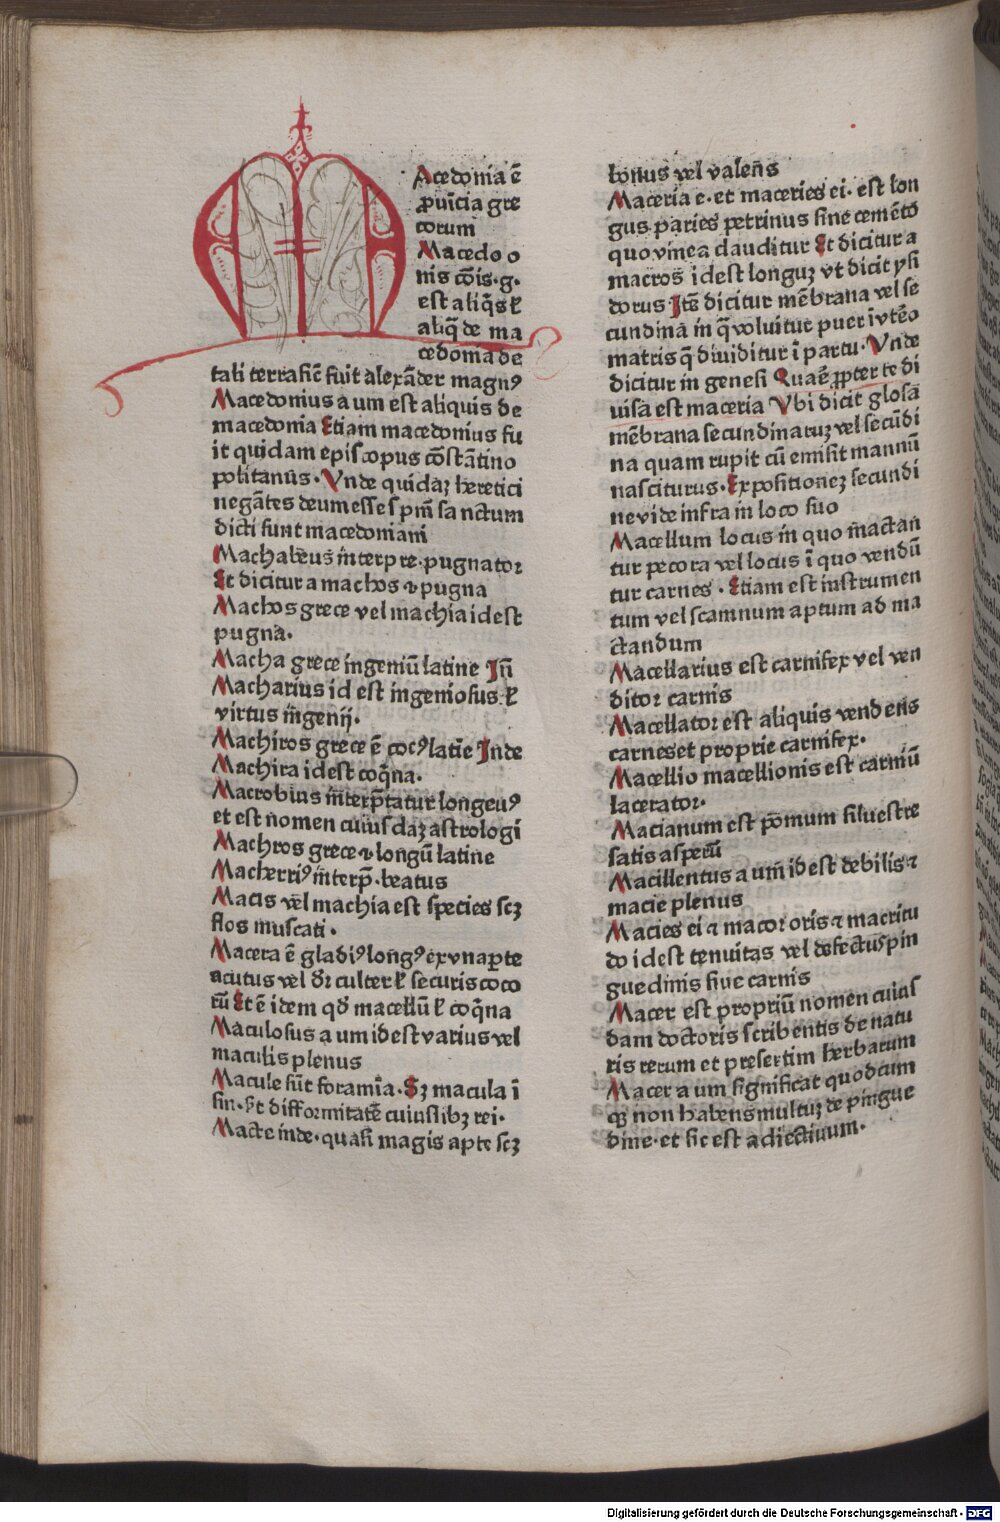 Acedonia ē
ꝓuīcia gre
corum
Macedo o
nis cōis·g·
est aliq̄s ł
aliq̄ de ma
cedonia de
tali terra sic̄ fuit alexāder magnꝰ
Macedonius a um est aliquis de
macedonia Etiam macedonius fu
it quidam episcopus cōstātino
politanus· Vnde quidaꝫ heretici
negātes deum esse spm̄ sanctum
dicti sunt macedoniani
Machabeus interpre·pugnator
Et dicitur a machos ꝛ pugna
Machos grece vel machia idest
pugna·
Macha grece ingeniū latine Iñ
Macharius id est ingeniosus ł
virtus ingenij·
Machiros grece ē cocꝰ latīe Inde
Machira idest coq̄na·
Macrobius interp̄tatur longeuꝰ
et est nomen cuiusdaꝫ astrologi
Machros grece ꝛ longū latine
Macherriꝰ interp̄·beatus
Macis vel machia est species scꝫ
flos muscati·
Macera ē gladiꝰ longꝰ ex vna ꝑte
acutus vel dr̄ culter ł securis coco
rū Et ē idem qd̄ macellū ł coq̄na
Maculosus a um idest varius vel
maculis plenus
Macule sūt foramīa· Sꝫ macula ī
sin·st difformitatē cuiuslibꝫ rei·
Macte inde·quasi magis apte scꝫ
bonus vel valens
Maceria e·et maceries ei·est lon
gus paries petrinus sine cemēto
quo vinea clauditur Et dicitur a
macros idest longuꝫ vt dicit ysi
dorus Itē dicitur mēbrana vel se
cundina in q̄ voluitur puer ī vtēo
matris q̄ diuiditur ī partu· Vnde
dicitur in genesi Quaē ꝓpter te di
uisa est maceria Vbi dicit glosa
mēbrana secundinaruꝫ vel secūdi
na quam rupit cū emisit mannū
nasciturus· Expositioneꝫ secundi
ne vide infra in loco suo
Macellum locus in quo mactan
tur pecora vel locus ī quo vendū
tur carnes · Etiam est instrumen
tum vel scamnum aptum ad ma
ctandum
Macellarius est carnifex vel ven
ditor carnis
Macellator est aliquis vendens
carneset proprie carnifex·
Macellio macellionis est carniū
lacerator·
Macianum est pomum siluestre
satis asperū
Macillentus a um idest debilis ꝛ
macie plenus
Macies ei ꝛ macor oris ꝛ macritu
do idest tenuitas vel defectus pin
guedinis siue carnis
Macer est propriū nomen cuius
dam doctoris scribentis de natu
ris rerum et presertim herbarum
Macer a um significat quodcum
qꝫ non habens multuꝫ de pingue
dine·et sic est adiectiuum·
Digitalisierung gefördert durch die Deutsche Forschungsgemeinschaft · DFG